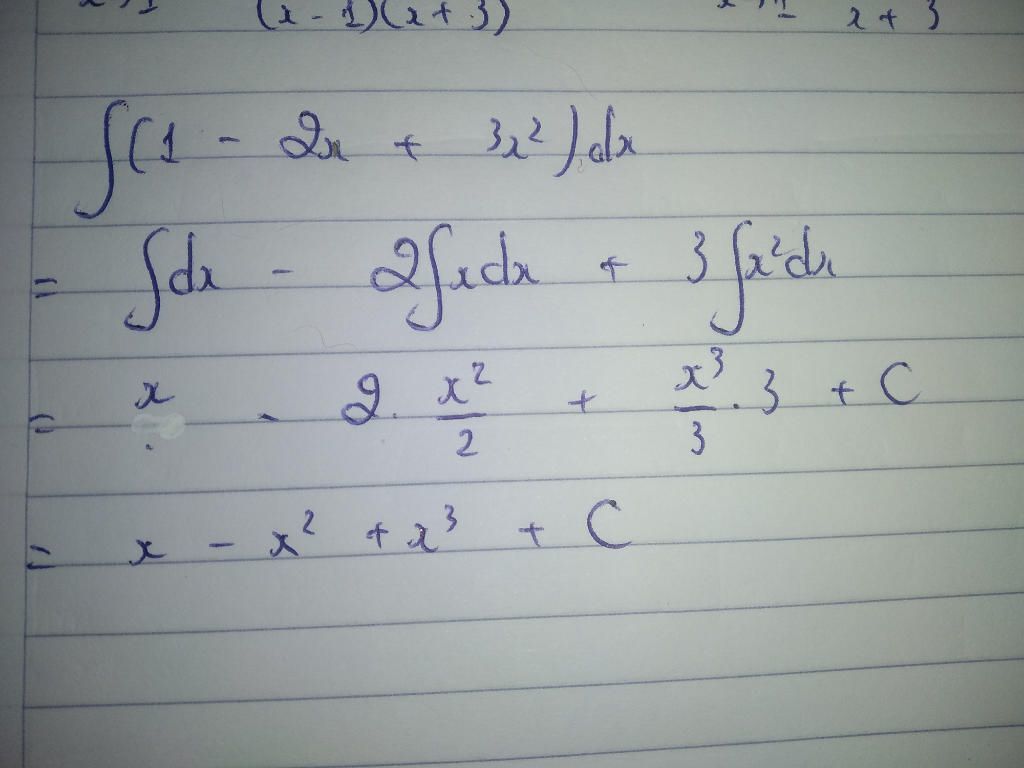 (x - 1)(x + 3) x + 3
∫(1 - 2x + 3x²) dx
= ∫dx - 2∫xdx + 3∫x²dx
= x - 2. x²/2 + x³/3 . 3 + C
= x - x² + x³ + C